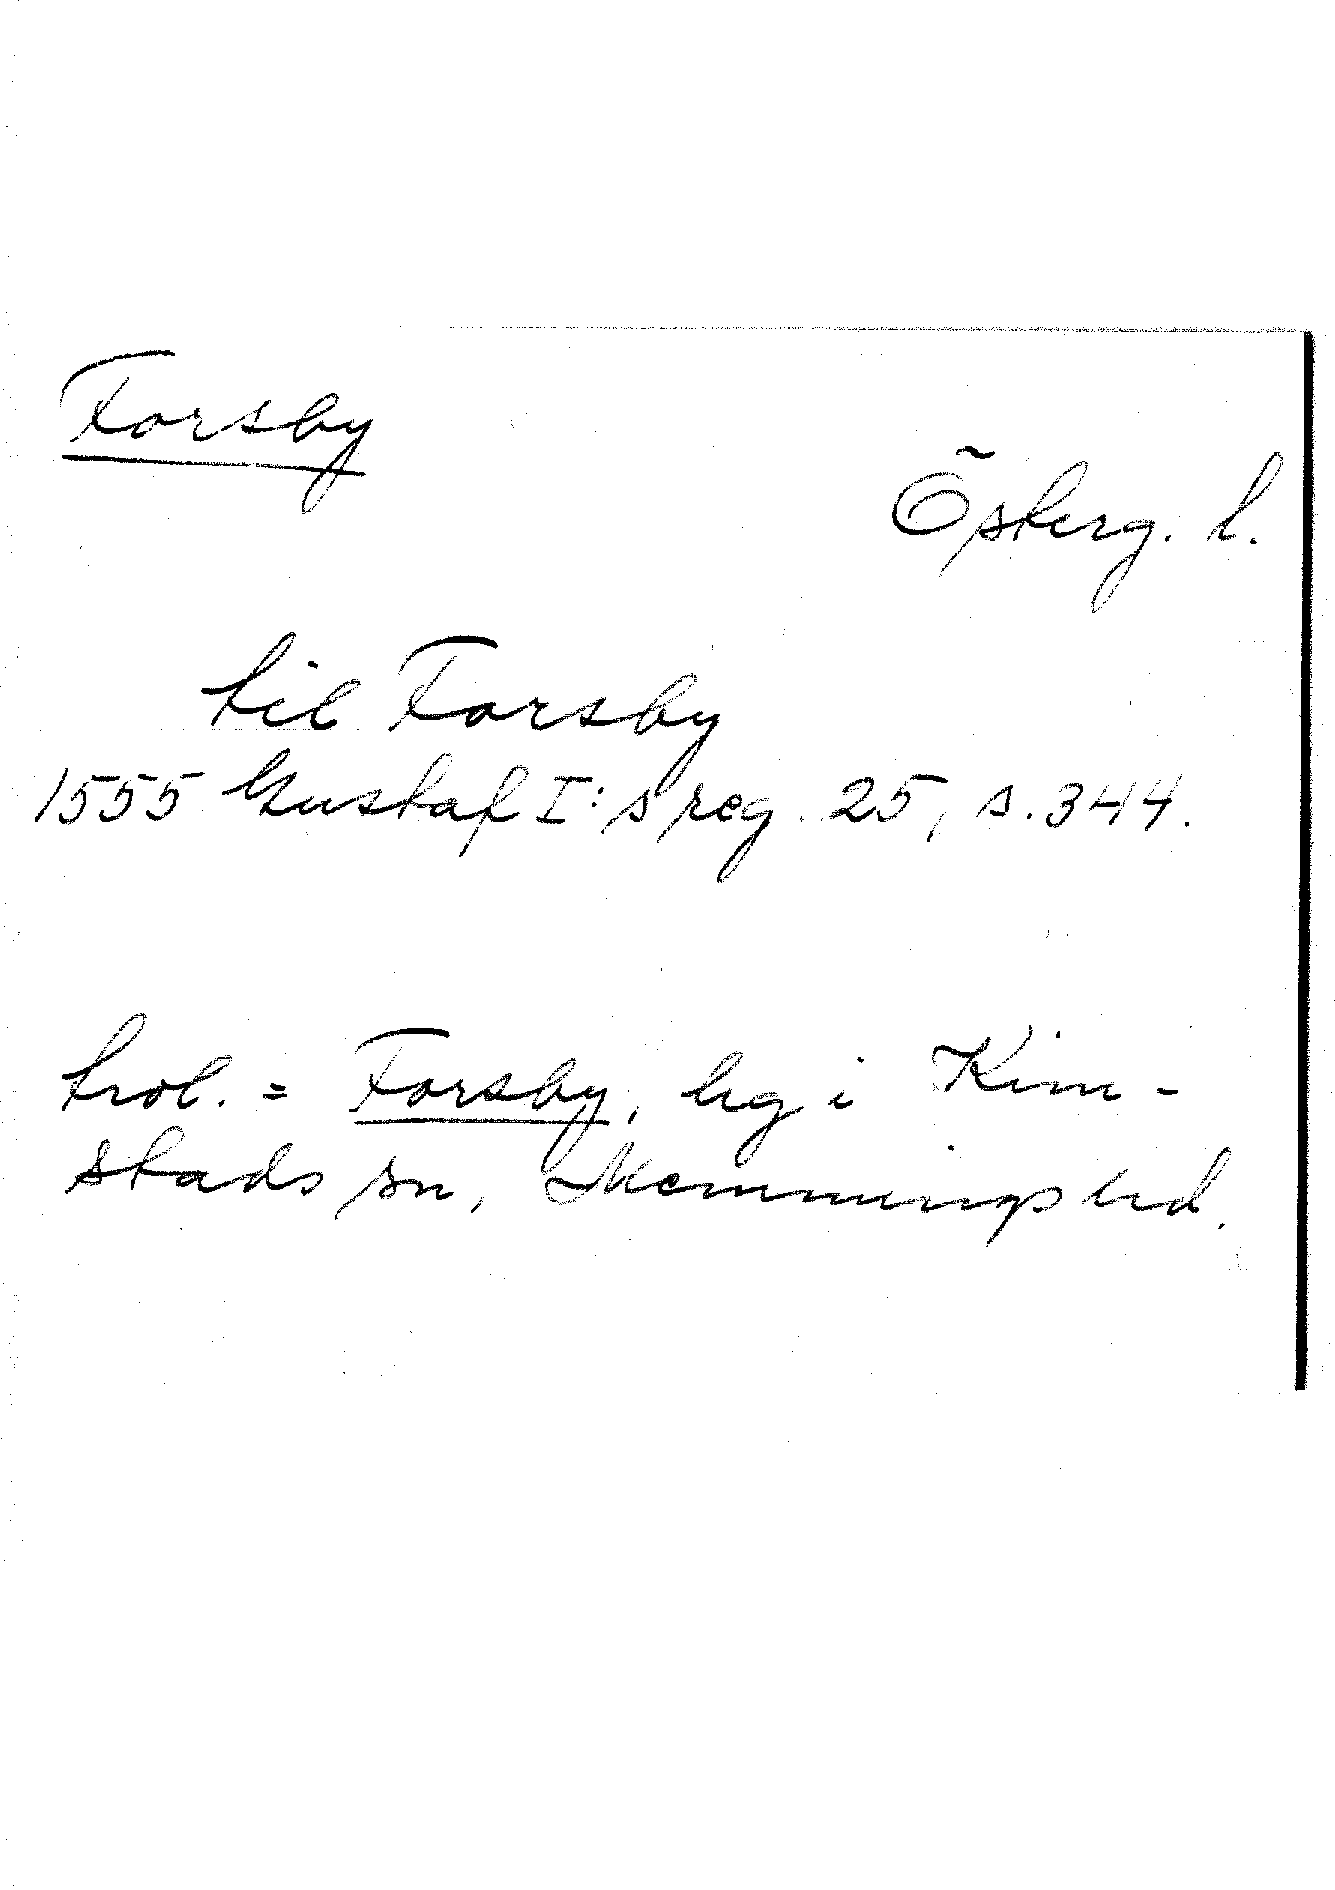 Forsby
Österg. l.
til Forsby
1555 Gustaf I:s reg. 25, s. 344.
trol. = Forsby, hg i Kim-
stads sn, Memmings hd.